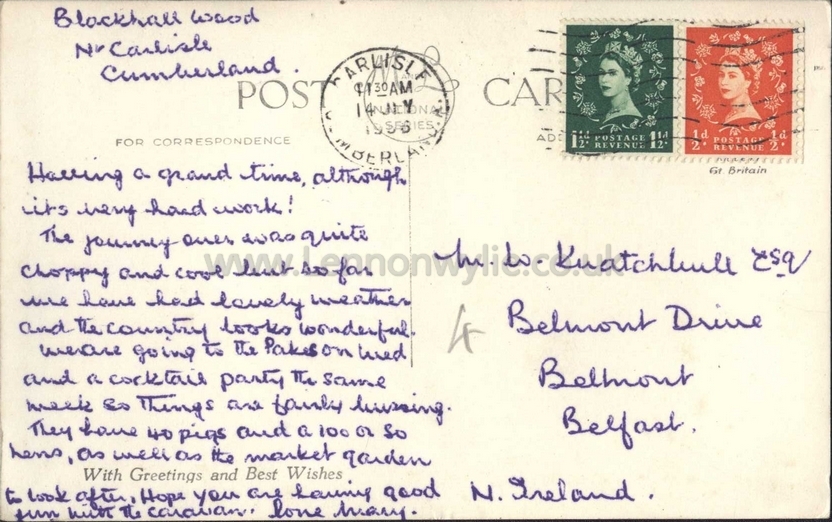 Blackhall Wood
Nr Carlisle
Cumberland.
POST CARD
FOR CORRESPONDENCE
CARLISLE
11 30 AM
14 JLY
1956
CUMBERLAND
NATIONAL
SERIES
1½d POSTAGE 1½d
REVENUE
½d POSTAGE ½d
REVENUE
Gt. Britain
Having a grand time, although
it's very hard work!
The journey over was quite
choppy and cool but so far
we have had lovely weather
and the country looks wonderful.
We are going to the Lakes on Wed
and a cocktail party the same
week so things are fairly buzzing.
They have 40 pigs and a 100 or so
hens, as well as the market garden
With Greetings and Best Wishes
to look after. Hope you are having good
fun with the caravan. Love Mary.
www.Lennonwylie.co.uk
M. W. Knatchbull Esq
Belmont Drive
Belmont
Belfast.
N. Ireland.
4